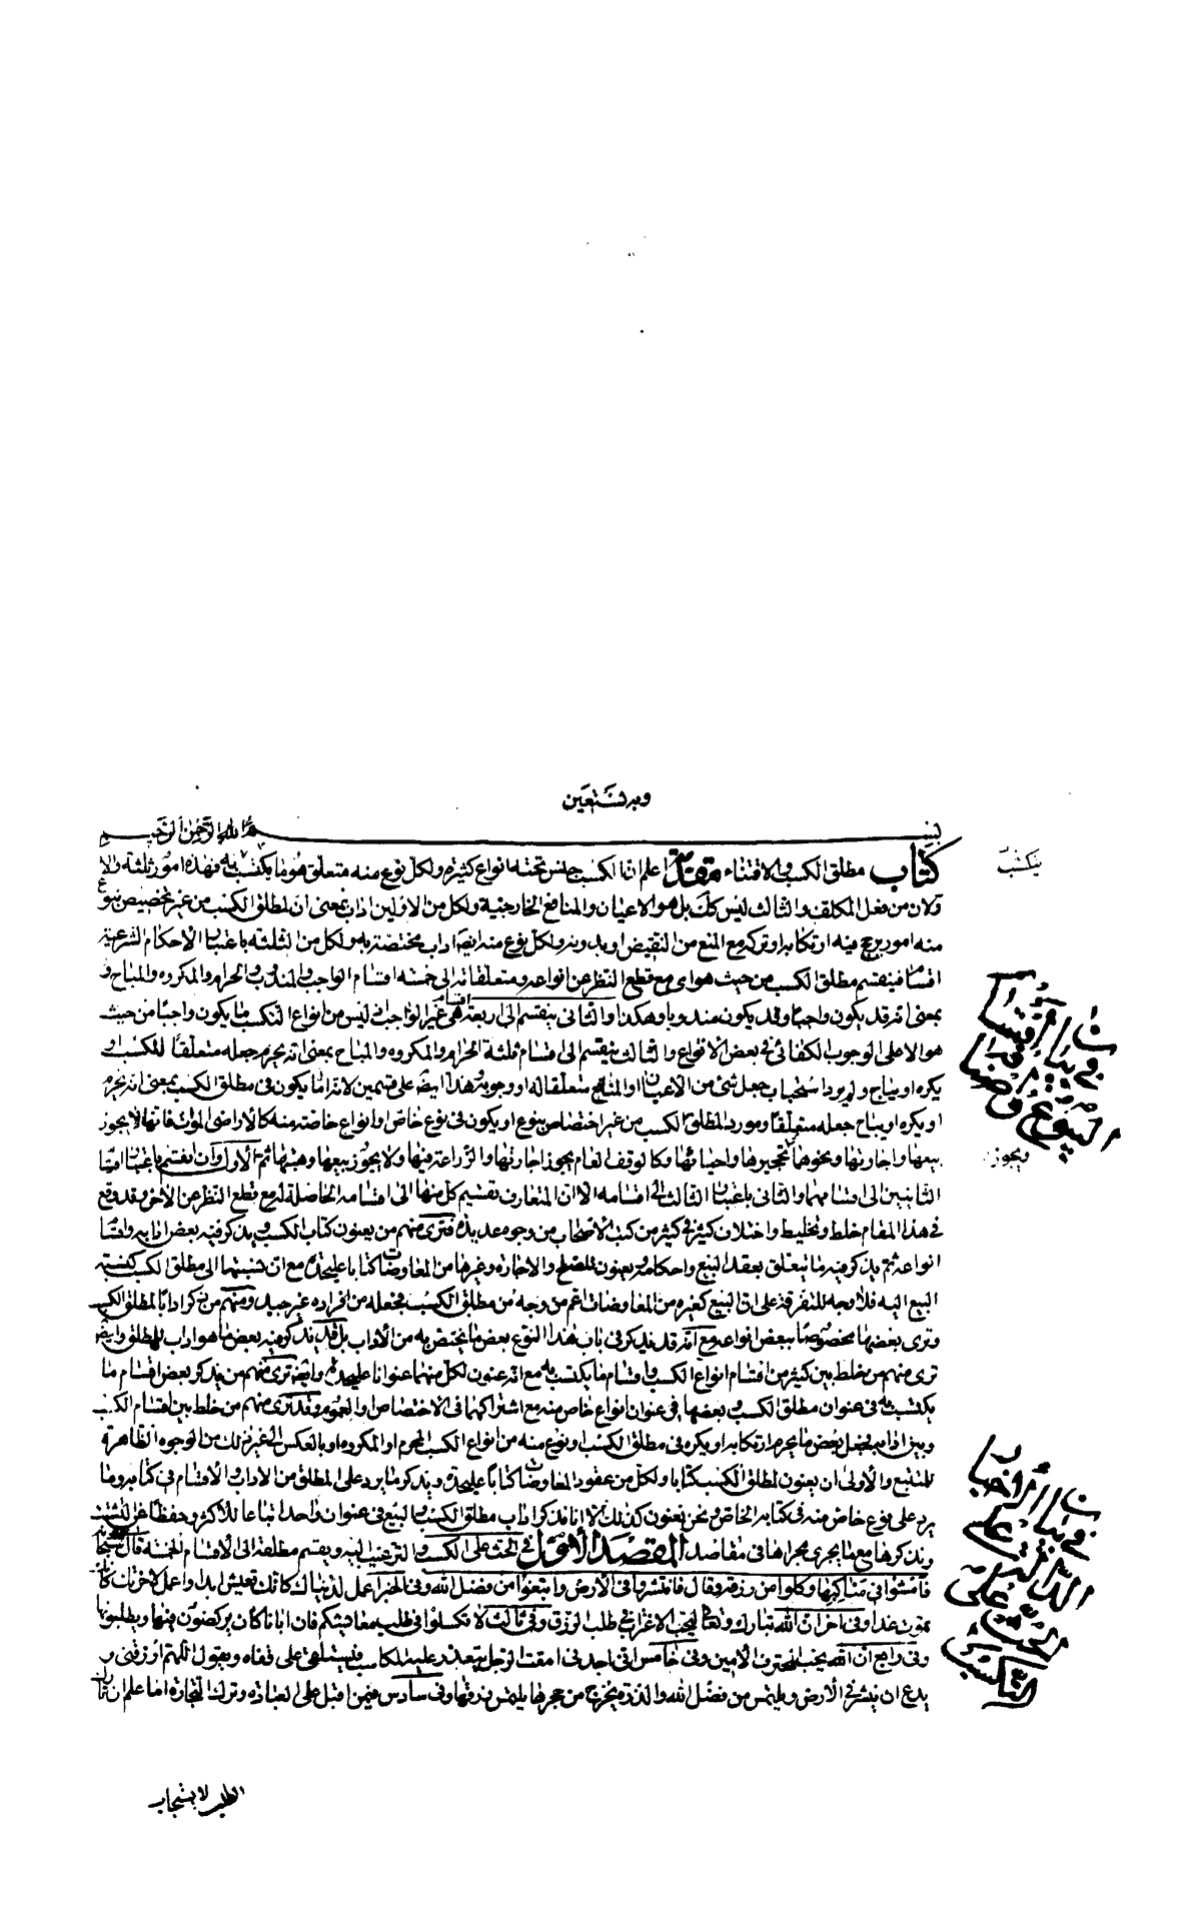 وبه نستعين
بسم الله الرحمن الرحيم
كتاب مطلق الكسب والاقتناء مقدمة اعلم ان الكسب جنس تحته انواع كثيرة ولكل نوع منه متعلق هو ما يكتسب به فهذه امور ثلثة والا
ولان من فعل المكلف والثالث ليس كك بل هو الاعيان والمنافع الخارجية ولكل من الاولين اداب بمعنى ان لمطلق الكسب من غير تخصيص بنوع
منه امور يرجح فيه ارتكابه او تركه مع المنع من النقيض او بدونه ولكل نوع منه ايضا اداب مختصة به ولكل من الثلثة باعتبار الاحكام الشرعية
اقسام فينقسم مطلق الكسب من حيث هو اى مع قطع النظر عن انواعه ومتعلقاته الى خمسة اقسام الواجب والمندوب والحرام والمكروه والمباح
بمعنى انه قد يكون واجبا وقد يكون مندوبا وهكذا والثانى ينقسم الى اربعة اقسام هى غير الواجب اذ ليس من انواع التكسب ما يكون واجبا من حيث
هو الا على الوجوب الكفائى فى بعض الانواع والثالث ينقسم الى اقسام ثلثة الحرام والمكروه والمباح بمعنى انه يحرم جعله متعلقا للكسب او
يكره او يباح ولم يرد استحباب جعل شئ من الاعيان او المنافع متعلقا له او وجوبه وهذا ايضا على قسمين لانه اما يكون فى مطلق الكسب بمعنى انه يحرم
او يكره او يباح جعله متعلقا وموردا لمطلق الكسب من غير اختصاص بنوع او يكون فى نوع خاص وانواع خاصة منه كالاراضى الموات فانها لا يجوز
بيعها واجارتها ونحوها ويجوز تحجيرها واحيائها وكالوقف العام يجوز اجارتها والزراعة فيها ولا يجوز بيعها وهبتها ثم الاول وان انقسم باعتبار اقسام
الثانيين الى اقسامهما والثانى باعتبار الثالث الى اقسامه الا ان المتعارف تقسيم كل منها الى اقسامه الحاصلة له مع قطع النظر عن الاخر وقد وقع
فى هذا المقام خلط وتخليط واختلاف كثير فى كثير من كتب الاصحاب من وجوه عديدة فترى منهم من يعنون كتاب الكسب ويذكر فيه بعض ادابه واقسام
انواعه ثم يذكر فيه ما يتعلق بعقد البيع واحكامه ويعنون للصلح والاجارة وغيرها من المعاوضات كتابا عليحدة مع ان نسبتها الى مطلق الكسب كنسبة
البيع اليه فلا وجه للتفرقة على ان البيع كغيره من المعاوضات اعم من وجه من مطلق الكسب فجعله من افراده غير جيد ومنهم من ذكر ادابا لمطلق الكسب
وترى بعضها مخصوصا ببعض انواعه مع انه قد يذكر فى باب هذا النوع بعض ما يختص به من الاداب بل قد يذكر فيه بعض ما هو اداب للمطلق وايضا
ترى منهم من يخلط بين كثير من اقسام انواع الكسب واقسام ما يكتسب به مع انه عنون لكل منهما عنوانا عليحدة وايضا ترى منهم من يذكر بعض اقسام ما
يكتسب به فى عنوان مطلق الكسب وبعضها فى عنوان انواع خاص منه مع اشتراكهما فى الاختصاص او العموم وقد ترى منهم من خلط بين اقسام الكسب
وبين ادابه فجعل بعض ما يحرم ارتكابه او يكره فى مطلق الكسب او نوع منه من انواع الكسب المحرم او المكروه او بالعكس الى غير ذلك من الوجوه الظاهرة
للمتتبع والاولى ان يعنون لمطلق الكسب كتابا ولكل من عقود المعاوضات كتابا عليحدة ويذكر ما يرد على المطلق من الاداب والاقسام فى كتابه وما
يرد على نوع خاص منه فى كتابه الخاص ونحن نعنون كذلك الا انا نذكر اداب مطلق الكسب والبيع فى عنوان واحد اتباعا للاكثر وحفظا عن التشتت
ونذكرها مع ما يجرى مجراها فى مقاصد المقصد الاول فى الحث على الكسب والترغيب اليه وتقسيم مطلقه الى الاقسام الخمسة قال سبحانه
فامشوا فى مناكبها وكلوا من رزقه وقال فانتشروا فى الارض وابتغوا من فضل الله وفى الخبر اعمل لدنياك كانك تعيش ابدا واعمل لاخرتك كانك
تموت غدا وفى اخر ان الله تبارك وتعالى ليحب الاغتراب فى طلب الرزق وفى ثالث لا تكسلوا فى طلب معايشكم فان اباءنا كان يركضون فيها ويطلبونها
وفى رابع ان الله يحب المحترف الامين وفى خامس انى اجدنى امقت الرجل يتعذر عليه المكاسب فيستلقى على قفاه ويقول اللهم ارزقنى و
يدع ان ينتشر فى الارض ويلتمس من فضل الله والذرة تخرج من حجرها يلتمس رزقها وفى سادس فيمن اقبل على العبادة وترك التجارة اما علم ان تارك
الطلب لا يستجاب
يكتسب
فى بيان اقسام البيوع وفضلها
ويجوز
فى بيان الاخبار الدالة على الحث على التكسب